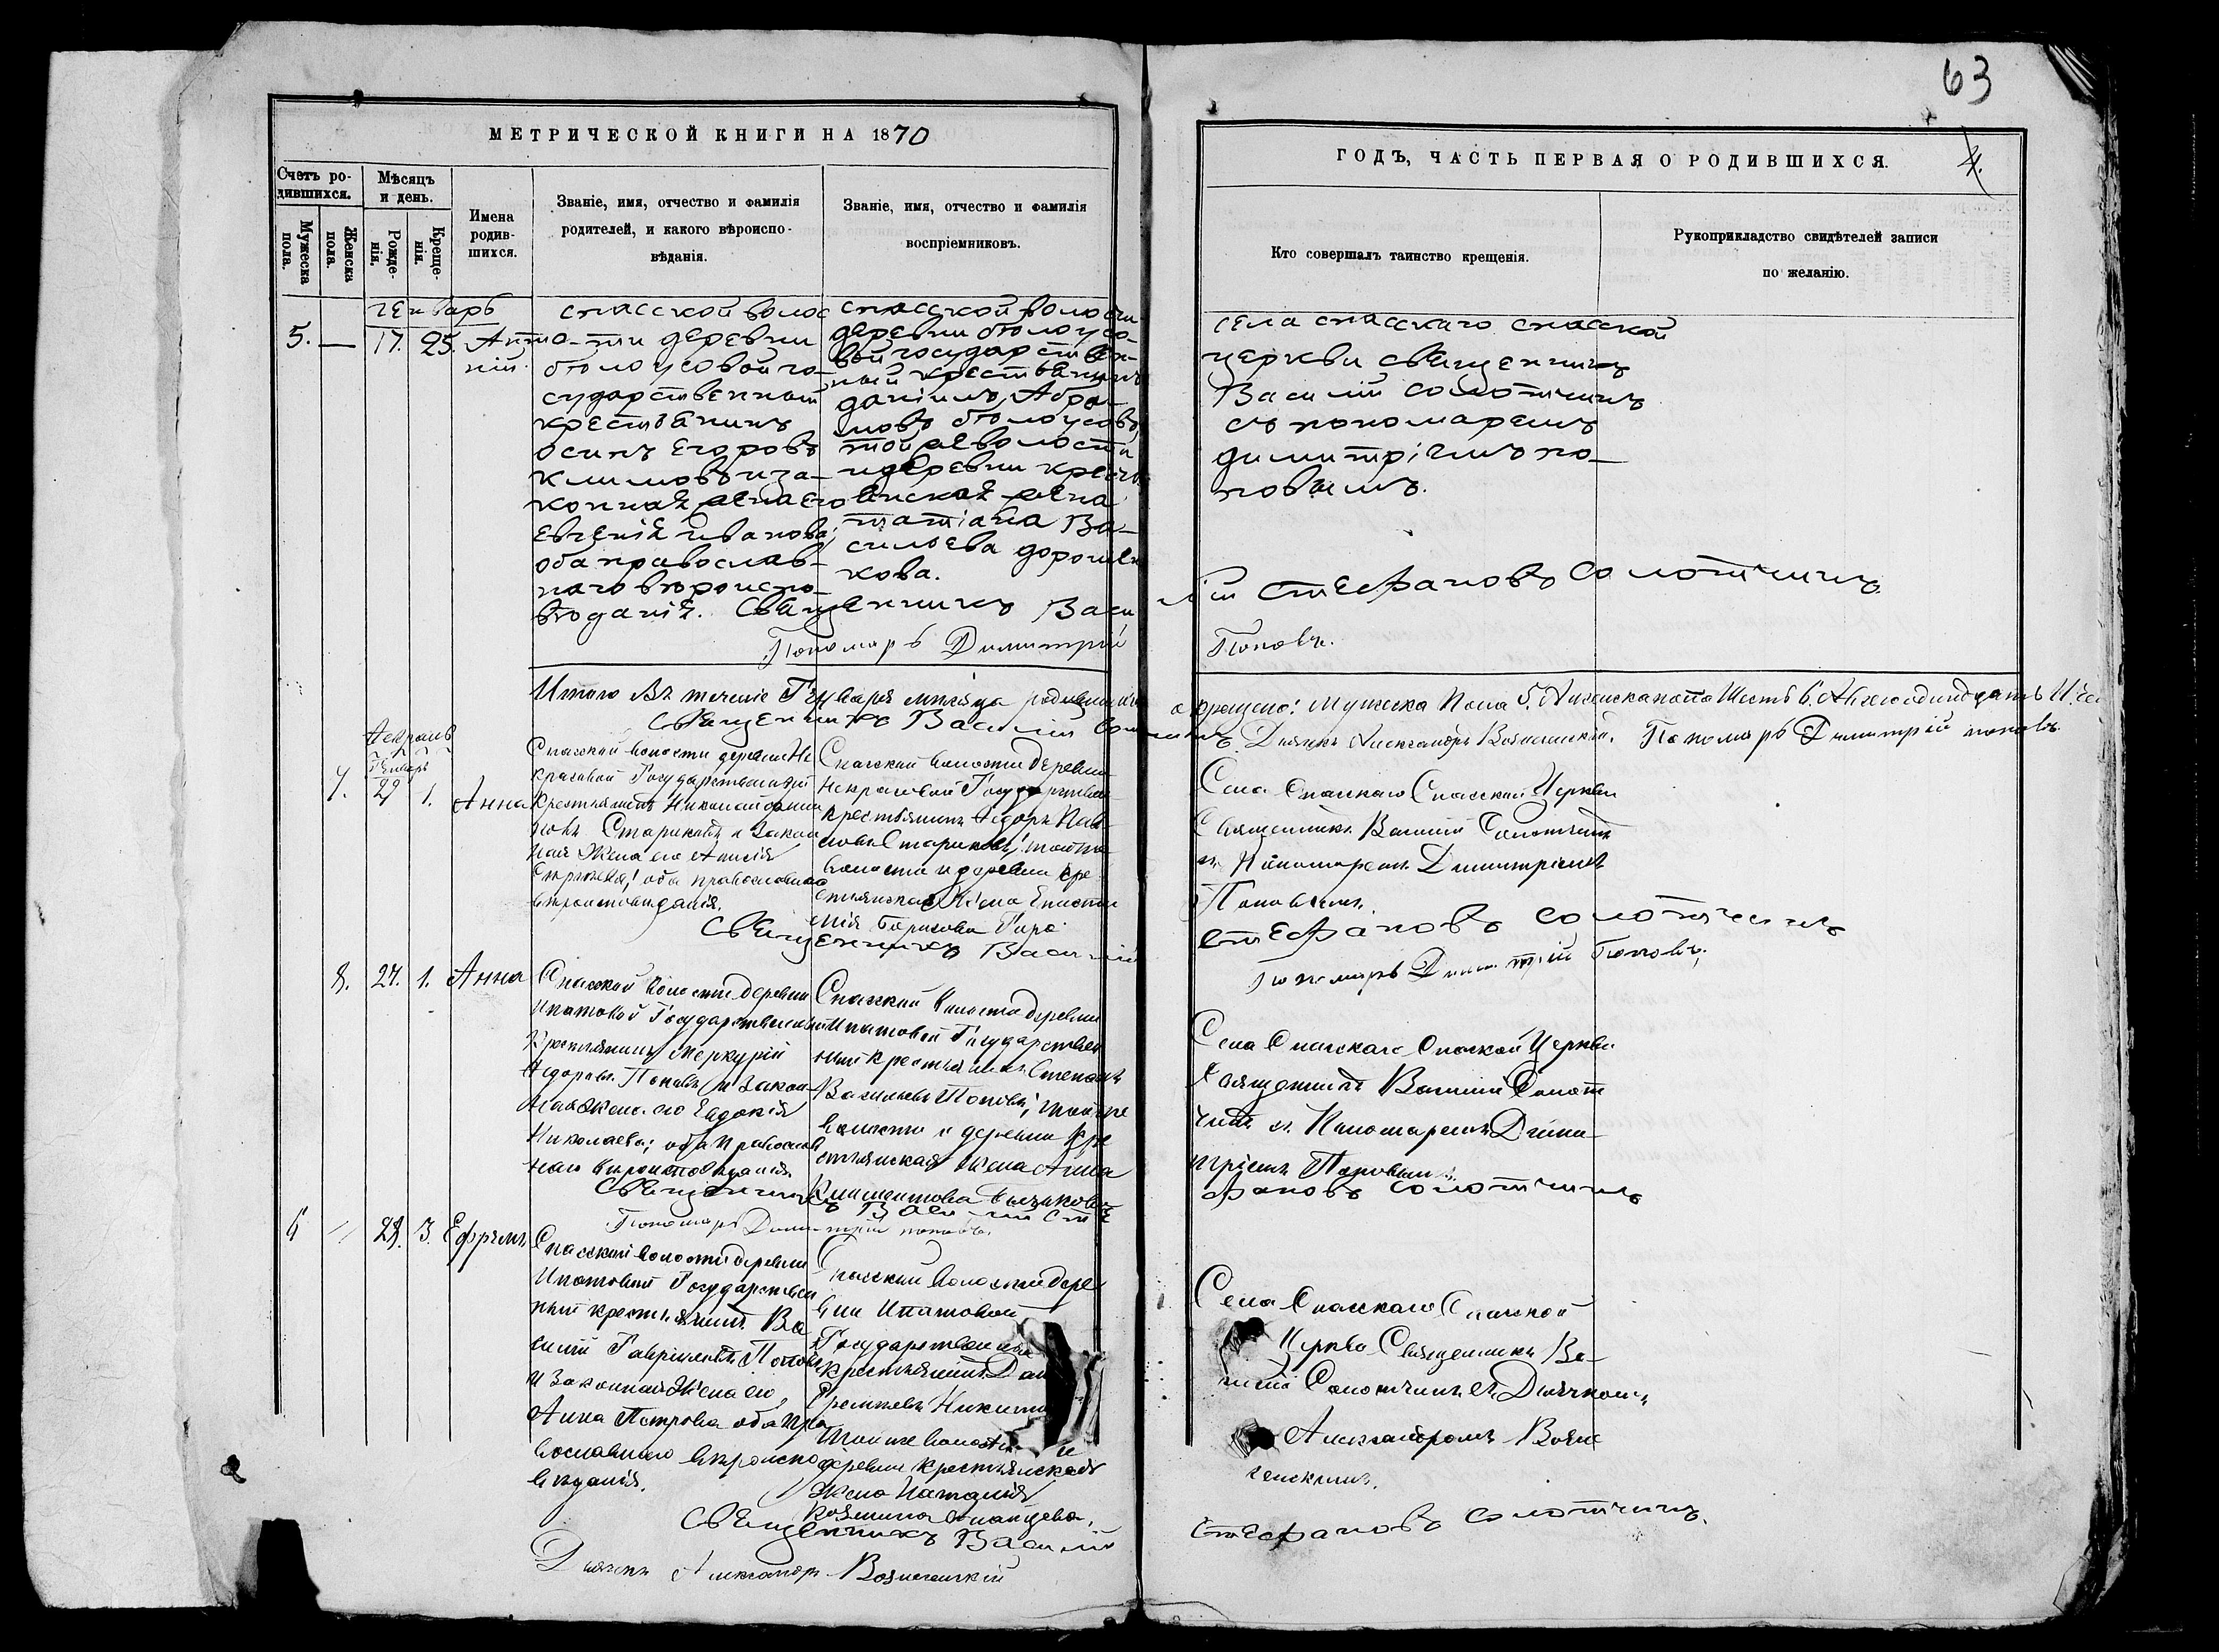 63
МЕТРИЧЕСКОЙ КНИГИ НА 1870
ГОДЪ, ЧАСТЬ ПЕРВАЯ О РОДИВШИХСЯ.
4.
Счетъ ро-
дившихся.
Мужеска
пола.
Женска
пола.
Мѣсяцъ
и день.
Рожде-
нія.
Креще-
нія.
Имена
родив-
шихся.
Званіе, имя, отчество и фамилія
родителей, и какого вѣроиспо-
вѣданія.
Званіе, имя, отчество и фамилія
воспріемниковъ.
Кто совершалъ таинство крещенія.
Рукоприкладство свидѣтелей записи
по желанію.
генварь
5. — 17. 25. Анто-
ній
спасской волос
ти деревни
бѣлоусовой го-
сударственный
крестьянинъ
осипъ Егоровъ
климовъ и за-
конная жена его
Евгенія Иванова;
оба православ-
наго вѣроиспо-
вѣданія.
спасской волости
деревни бѣлоусо-
вой государствен-
ный крестьянинъ
даніилъ Абра-
мовъ бѣлоусовъ,
той же волости
и деревни кресть
янская жена
татіана Ва-
сильева
кова.
села спасскаго спасской
церкви священникъ
Василій солотчинъ
съ пономаремъ
димитріемъ по-
повымъ.
Священникъ Василій стефановъ солотчинъ.
Пономарь Димитрій Поповъ.
Итого въ теченіе Генваря мѣсяца родившихся
крещено: Мужеска пола 5. Женска пола Шесть 6. А всего одинадцать 11. че
Священникъ Василій солотчинъ. Дьячекъ Александръ Вознесенскій. Пономарь Димитрій поповъ.
Февраль
Генварь
7. 27 1. Анна
Спасской волости деревни Не
красовой Государственный
Крестьянинъ Николай
новъ Стариковъ и Закон
ная Жена его Анисія
оба православнаго
вѣроисповѣданія.
Спасской волости деревни
Некрасовой Государствен
крестьянинъ Ѳедоръ Пав
ловъ Стариковъ; той же
волости и деревни кре
стьянская Жена Еписти
мія Борисова
Села Спасскаго Спасской Церкви
Священникъ Василій Солотчинъ
съ Пономаремъ Димитріемъ
Поповымъ.
Священникъ Василій стефановъ солотчинъ
Пономарь Димитрій Поповъ.
8. 27. 1. Анна
Спасской волости деревни
Ипатовой Государственный
Крестьянинъ Меркурій
Ѳедоровъ Поповъ и Закон-
ная Жена его Евдокія
Николаева; оба Православ
наго вѣроисповѣданія.
Спасской волости деревни
Ипатовой Государствен
ный Крестьянинъ Степанъ
Васильевъ Поповъ; той же
волости и деревни кре
стьянская жена Анна
Климентова
Села Спасскаго Спасской Церкви
Священникъ Василій Солот
чинъ съ Пономаремъ Дими-
тріемъ Поповымъ.
Священникъ Василій стефановъ солотчинъ
Пономарь Димитрій поповъ.
6 28. 3. Ефремъ
Спасской волости деревни
Ипатовой Государствен
ный крестьянинъ Ва
силій Гавріиловъ Поповъ
и Законная Жена его,
Анна Петрова оба пра
вославнаго вѣроиспо
вѣданія.
Спасской волости дере
вни Ипатовой
Государственный
крестьянинъ
той же волости и
деревни крестьянская
Жена Наталія
Козмина
Села Спасскаго Спасской
Церкви Священникъ Ва-
силій Солотчинъ съ Дьячкомъ
Александромъ Возне
сенскимъ.
Священникъ Василій стефановъ солотчинъ.
Дьячекъ Александръ Вознесенскій